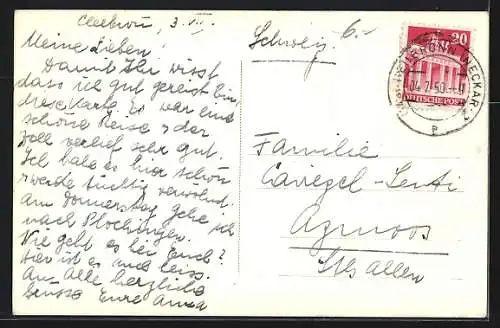 Cleebronn, 3. VII.
Meine Lieben!
Damit Ihr wisst
dass ich gut gereist bin,
diese Karte. Es war eine
schöne Reise & der
Zoll verlief sehr gut.
Ich habe es hier schön
& werde tüchtig verwöhnt.
Am Donnerstag gehe ich
nach Plochingen.
Wie geht es bei Euch?
Hier ist es auch heiss.
An Alle herzliche
Grüsse Eure Anna
Schweiz 6.-
20
DEUTSCHE POST
HEILBRONN (NECKAR) 2
04.7.50.
P
Familie
Caviezel-Senti
Azmoos
St. Gallen